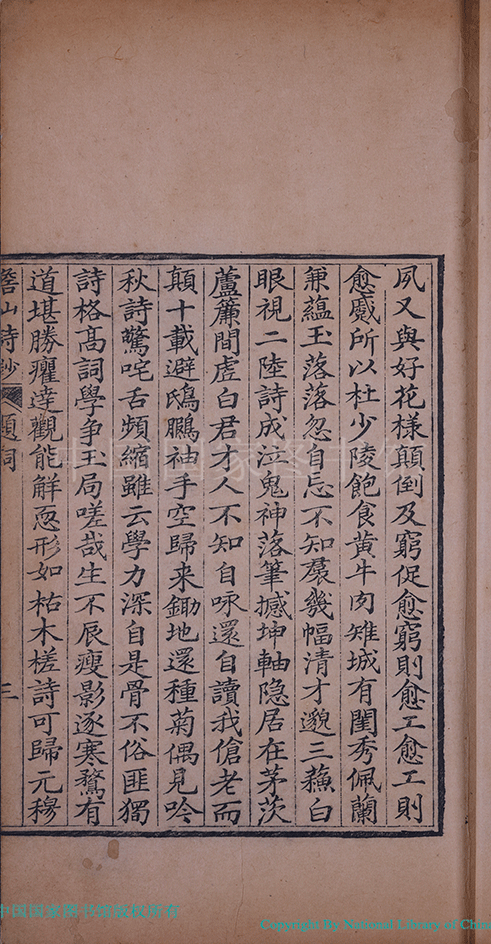 夙又與好花樣顛倒及窮促愈窮則愈工愈工則
愈戲所以杜少陵飽食黃牛肉雉城有閨秀佩蘭
兼蘊玉落落忽自忘不知裠幾幅清才邈三蘓白
眼視二陸詩成泣鬼神落筆撼坤軸隐居在茅茨
蘆簾間虛白君才人不知自咏還自讀我傖老而
顛十載避鴟鵩袖手空歸来鋤地還種菊偶見吟
秋詩驚咤舌頻縮雖云學力深自是骨不俗匪獨
詩格髙詞學争玉局嗟哉生不辰瘦影逐寒鶩有
道堪勝癯達觀能解惡形如枯木槎詩可歸元穆
詹山詩鈔 題詞 三
中国国家图书馆版权所有
Copyright By National Library of China